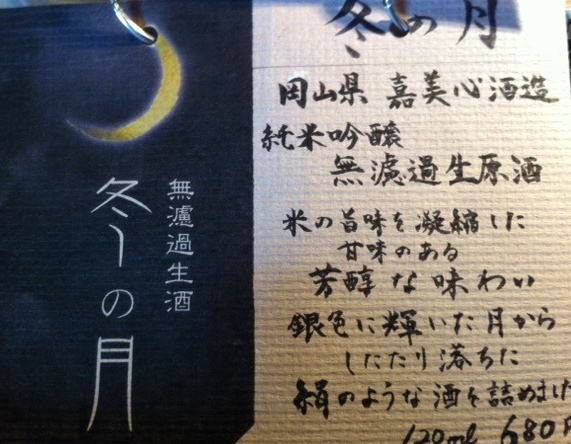 冬の月
無濾過生酒
冬の月
岡山県 嘉美心酒造
純米吟醸
無濾過生原酒
米の旨味を凝縮した
甘味のある
芳醇な味わい
銀色に輝いた月から
したたり落ちた
絹のような酒を詰めました
120ml 680円